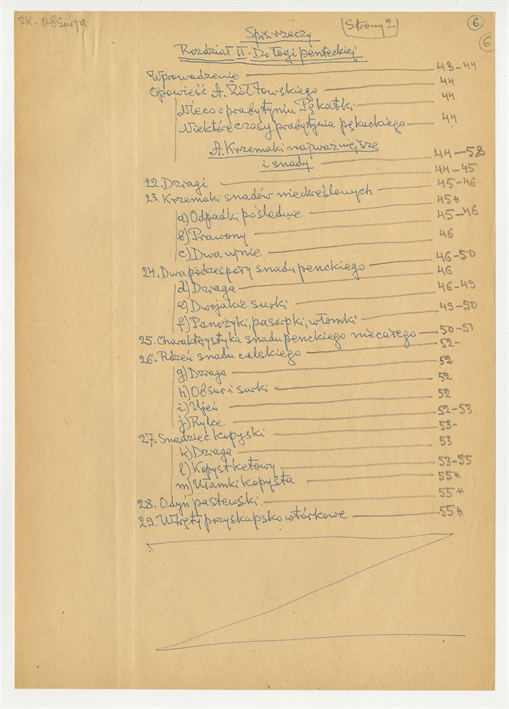 SK. Obsurja
Spis rzeczy
(Strony 2)
6
6
Rozdział II. Do łogi penteckiej
Wprowadzenie 43-44
Opowieść A. Żółtowskiego 44
Nieco o prabytyniu Pękatki 44
Niektóre czasy prabytynia pękackiego 44
A. Krzemaki najważniejsze
i snady 44-58
22. Dzragi 44-45
23. Krzemaki snadów nieokreślonych 45-46
a) Odpadki poślednie 45*
b) Prawony 45-46
c) Dwa ujnie 46
24. Dwa podzespoły snadu penckiego 46-50
d) Dzraga 46
e) Dwojakie surki 46-49
f) Panożyki, pasarpki, włomki 49-50
25. Charakterystyka snadu penckiego niecałego 50-51
26. Rdzeń snadu calskiego 52-
g) Dzraga 52
h) Obsur i surki 52
i) Ujeń 52
j) Rylce 52-53
27. Snadziec kopyski 53-
k) Dzraga 53
l) Kopyst ketowy 53-55
m) Ułamki kopysta 55*
28. Odyń pastewski 55*
29. Wkręty przyskapsko wtórkowe 55*